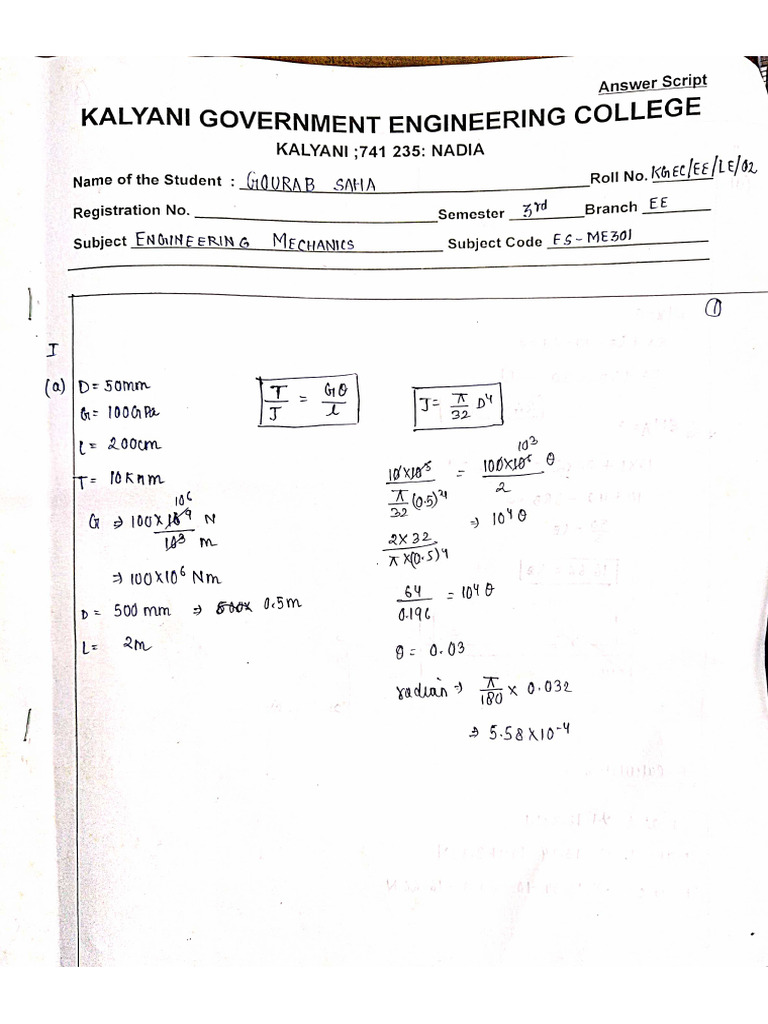 Answer Script
KALYANI GOVERNMENT ENGINEERING COLLEGE
KALYANI ;741 235: NADIA
Name of the Student : GOURAB SAHA Roll No. KGEC/EE/LE/02
Registration No. Semester 3rd Branch EE
Subject ENGINEERING MECHANICS Subject Code ES-ME301
1
I
(a) D = 50mm
G = 100GPa
l = 200cm
T = 10Knm
G ⇒ 100×10^9 10^6 N / 10^3 m
⇒ 100×10^6 Nm
D = 500 mm ⇒ 500× 0.5m
L = 2m
T/J = Gθ/l
J = π/32 D^4
10×10^3 / π/32 (0.5)^4 = 100×10^6 10^3 θ / 2
2×32 / π×(0.5)^4 ⇒ 10^4 θ
64 / 0.196 = 10^4 θ
θ = 0.03
radian ⇒ π/180 × 0.032
⇒ 5.58×10^-4